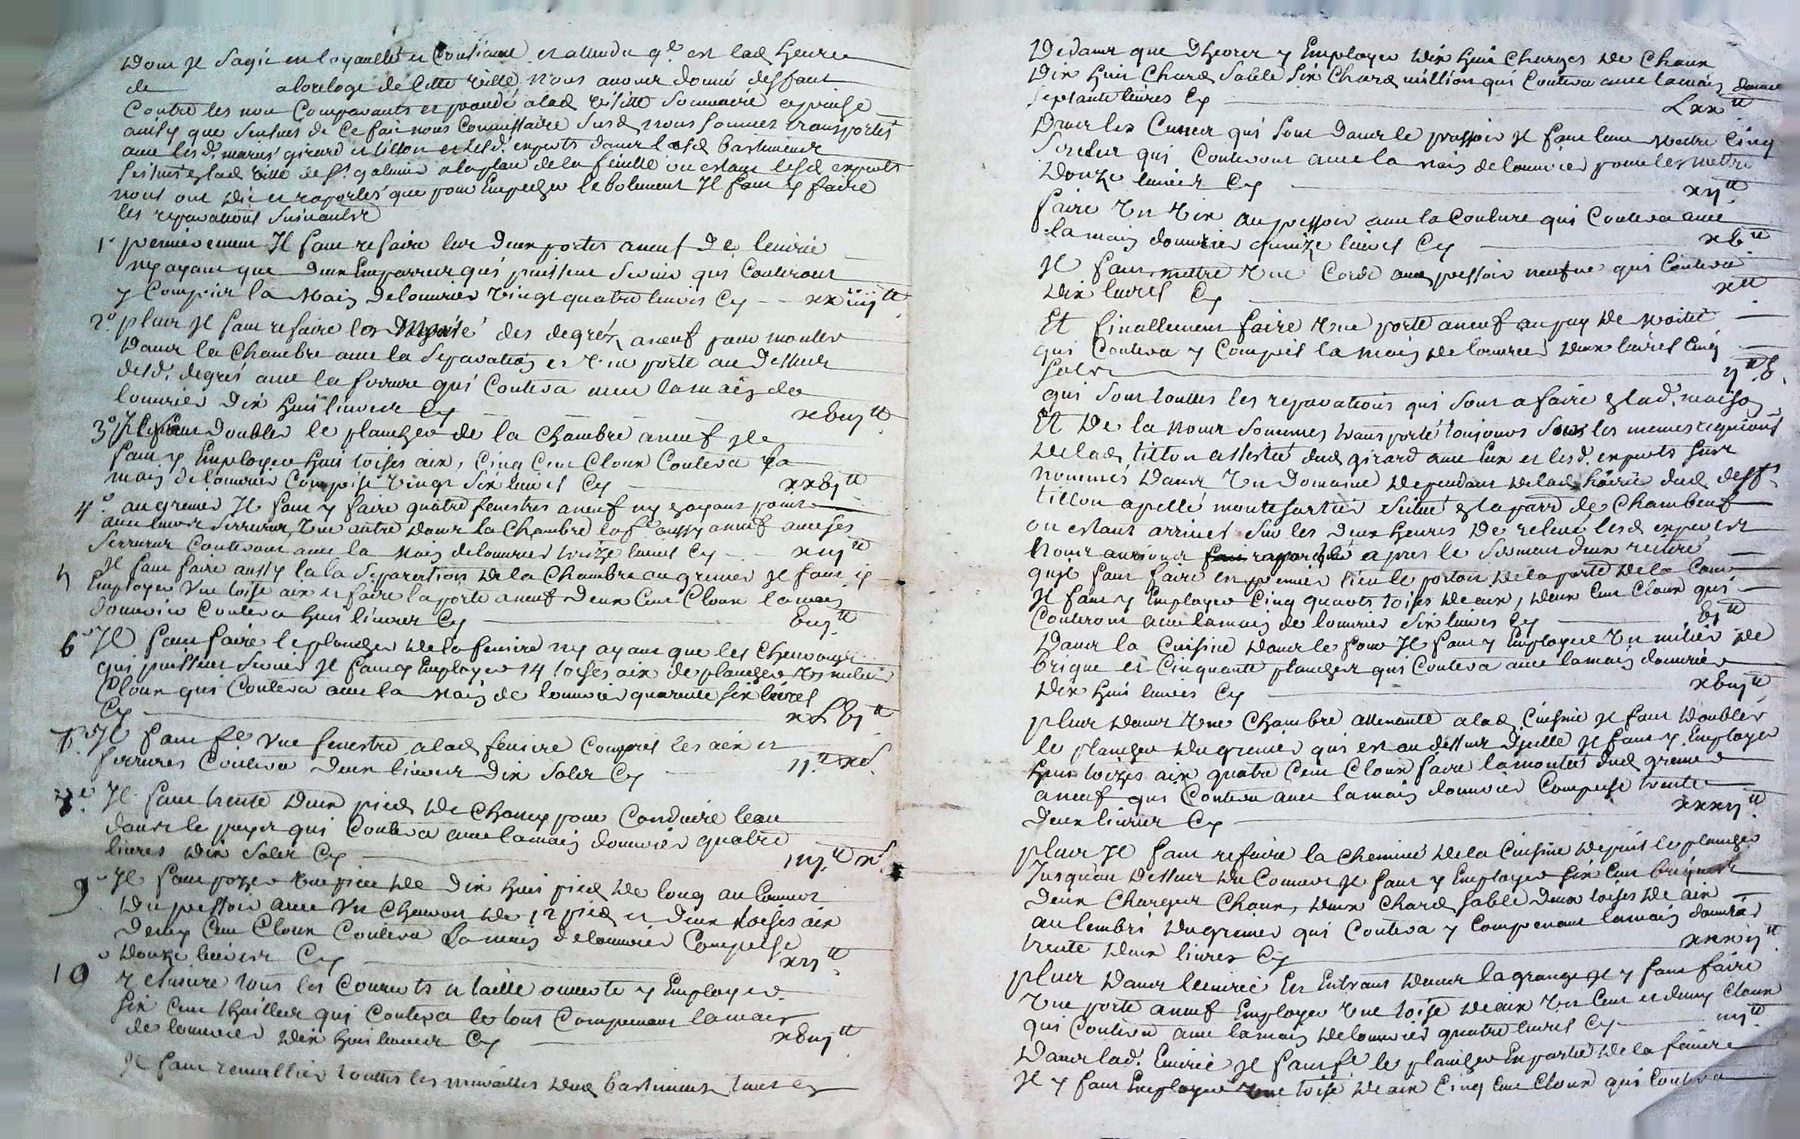 dont Il sagit en loyaulté et Consiance et attendu q.e est lad. heure
de aloreloge de cette ville nous avons donné deffaut
Contre les non Comparants et procédé alad. visitte Sommaire
ausy que ensuitte de Ce fait nous Commissaire susd. nous sommes transportés
avec lesd. girard et titton et lesd. experts dans lesd. bastiments
scitués lad. ville de St. galmier a la place de la feuille ou estant lesd. experts
nous ont dit et raportés que pour Empecher le Il faut y faire
les reparations suivantes
1° premierement Il faut refaire les deux portes aneuf de lentrée
ny ayant que deux Emparreurs qui puissent servir qui Couteront
y Compris la main de louvrier vingt quatre livres Cy xxiiij tt
2° plus Il faut refaire la des degrés aneuf pour monter
dans la Chambre avec la separation et une porte au dessus
desd. degrés avec la serrure qui Coutera avec la main de
louvrier dix huit livres Cy xbiij tt
3° Il faut doubler le plancher de la Chambre aneuf
faut y Employer huit toises aix, Cinq Cent Cloux Coutera la
main de louvrier Comprise vingt six livres Cy xxbj tt
4° au grenier Il faut y faire quatre fenestres aneuf ny ayant point
avec leurs serrures, une autre dans la Chambre aussy aneuf avec ses
serrures Couteront avec la main de louvrier treize livres Cy xiij tt
5 Il faut faire aussy la separation de la Chambre au grenier Il faut y
Employer une toise aix et faire la porte aneuf deux Cent Cloux la main
douvrier Coutera huit livres Cy biij tt
6° Il faut faire le plancher de la feniere ny ayant que les Chevrons
qui puissent servir Il faut y Employer 14 toises aix de plancher
Cloux qui Coutera avec la main de louvrier quarente six livres
Cy xLbj tt
7° Il faut fe une fenestre alad. feniere Compris les aix et
serrures Coutera deux livres dix sols Cy ij tt x s
8° Il faut trente deux pied de pour Conduire leau
dans le puys qui Coutera avec la main douvrier quatre
livres dix sols Cy iiij tt x s
9° Il faut pozer une piece de dix huit pied de long au
du pressoir avec un Chevron de 12 pied et deux toises aix
demy Cent Cloux Coutera la main de louvrier Comprise
douze livres Cy xij tt
10 refaire tous les Couverts et taille ouverte y Employer
six Cent thuilles qui Coutera le tout Comprenant la main
de louvrier dix huit livres Cy xbiij tt
Il faut remallier touttes les murailles desd. bastiments tant
dedans que dheors y Employer dix huit Charges de Chaux
dix huit Chard sable six Chard million qui Coutera avec la main douvr
septante livres Cy Lxx tt
pour les Cuves qui sont dans le pressoir Il faut leur mettre Cinq
sercles qui Couteront avec la main de louvrier pour les mettre
douze livres Cy xij tt
faire un vix au pressoir avec la qui Coutera avec
la main douvrier quinze livres Cy xb tt
Il faut mettre une Corde au pressoir neufve qui Coutera
dix livres Cy x tt
Et finallement faire une porte aneuf au puy de moitié
qui Coutera y Compris la main de louvrier deux livres Cinq
sols ij tt b
qui sont touttes les reparations qui sont a faire lad. maison
Et de la nous sommes transporté toujours sous les memes requisitions
de lad. titton assisté dud. girard avec Eux et lesd. experts sus
nommés dans un domaine dependant de lad. dud. deff.t
titton apellé montferlier situé la par.se de Chambeuf
ou estant arrivés sur les deux heures de relevé lesd. experts
nous auroient raporté apres le serment deux reiteré
quil faut faire en premier lieu le portail de la porte de la Cour
Il faut y Employer Cinq quarts toises de aix, deux Cent Cloux qui
Couteront avec la main de louvrier six livres Cy bj tt
dans la Cuisine dans le four Il faut y Employer un milier de
brique et Cinquante plancher qui Coutera avec la main douvrier
dix huit livres Cy xbiij tt
plus dans une Chambre attenante alad. Cuisine Il faut doubler
le plancher du grenier qui est au dessus dicelle Il faut y Employer
huit toizes aix quatre Cent Cloux faire la montée dud. grenier
aneuf qui Coutera avec la main douvrier Comprise trente
deux livres Cy xxxij tt
plus Il faut refaire la Cheminé de la Cuisine depuis le plancher
Jusquau dessus du Couvert Il faut y Employer six Cent briques
deux Charges Chaux, deux Chard sable deux toises de aix
au lembri du grenier qui Coutera y Comprenant la main douvrier
trente deux livres Cy xxxij tt
plus dans lentrée En Entrant dans la grange Il y faut faire
une porte aneuf Employer une toise de aix un Cent et demy Cloux
qui Coutera avec la main de louvrier quatre livres Cy iiij tt
dans lad. Ecurie Il faut fe le plancher En partie de la feniere
Il y faut Employer une toise de aix Cinq Cent Cloux qui Coutera